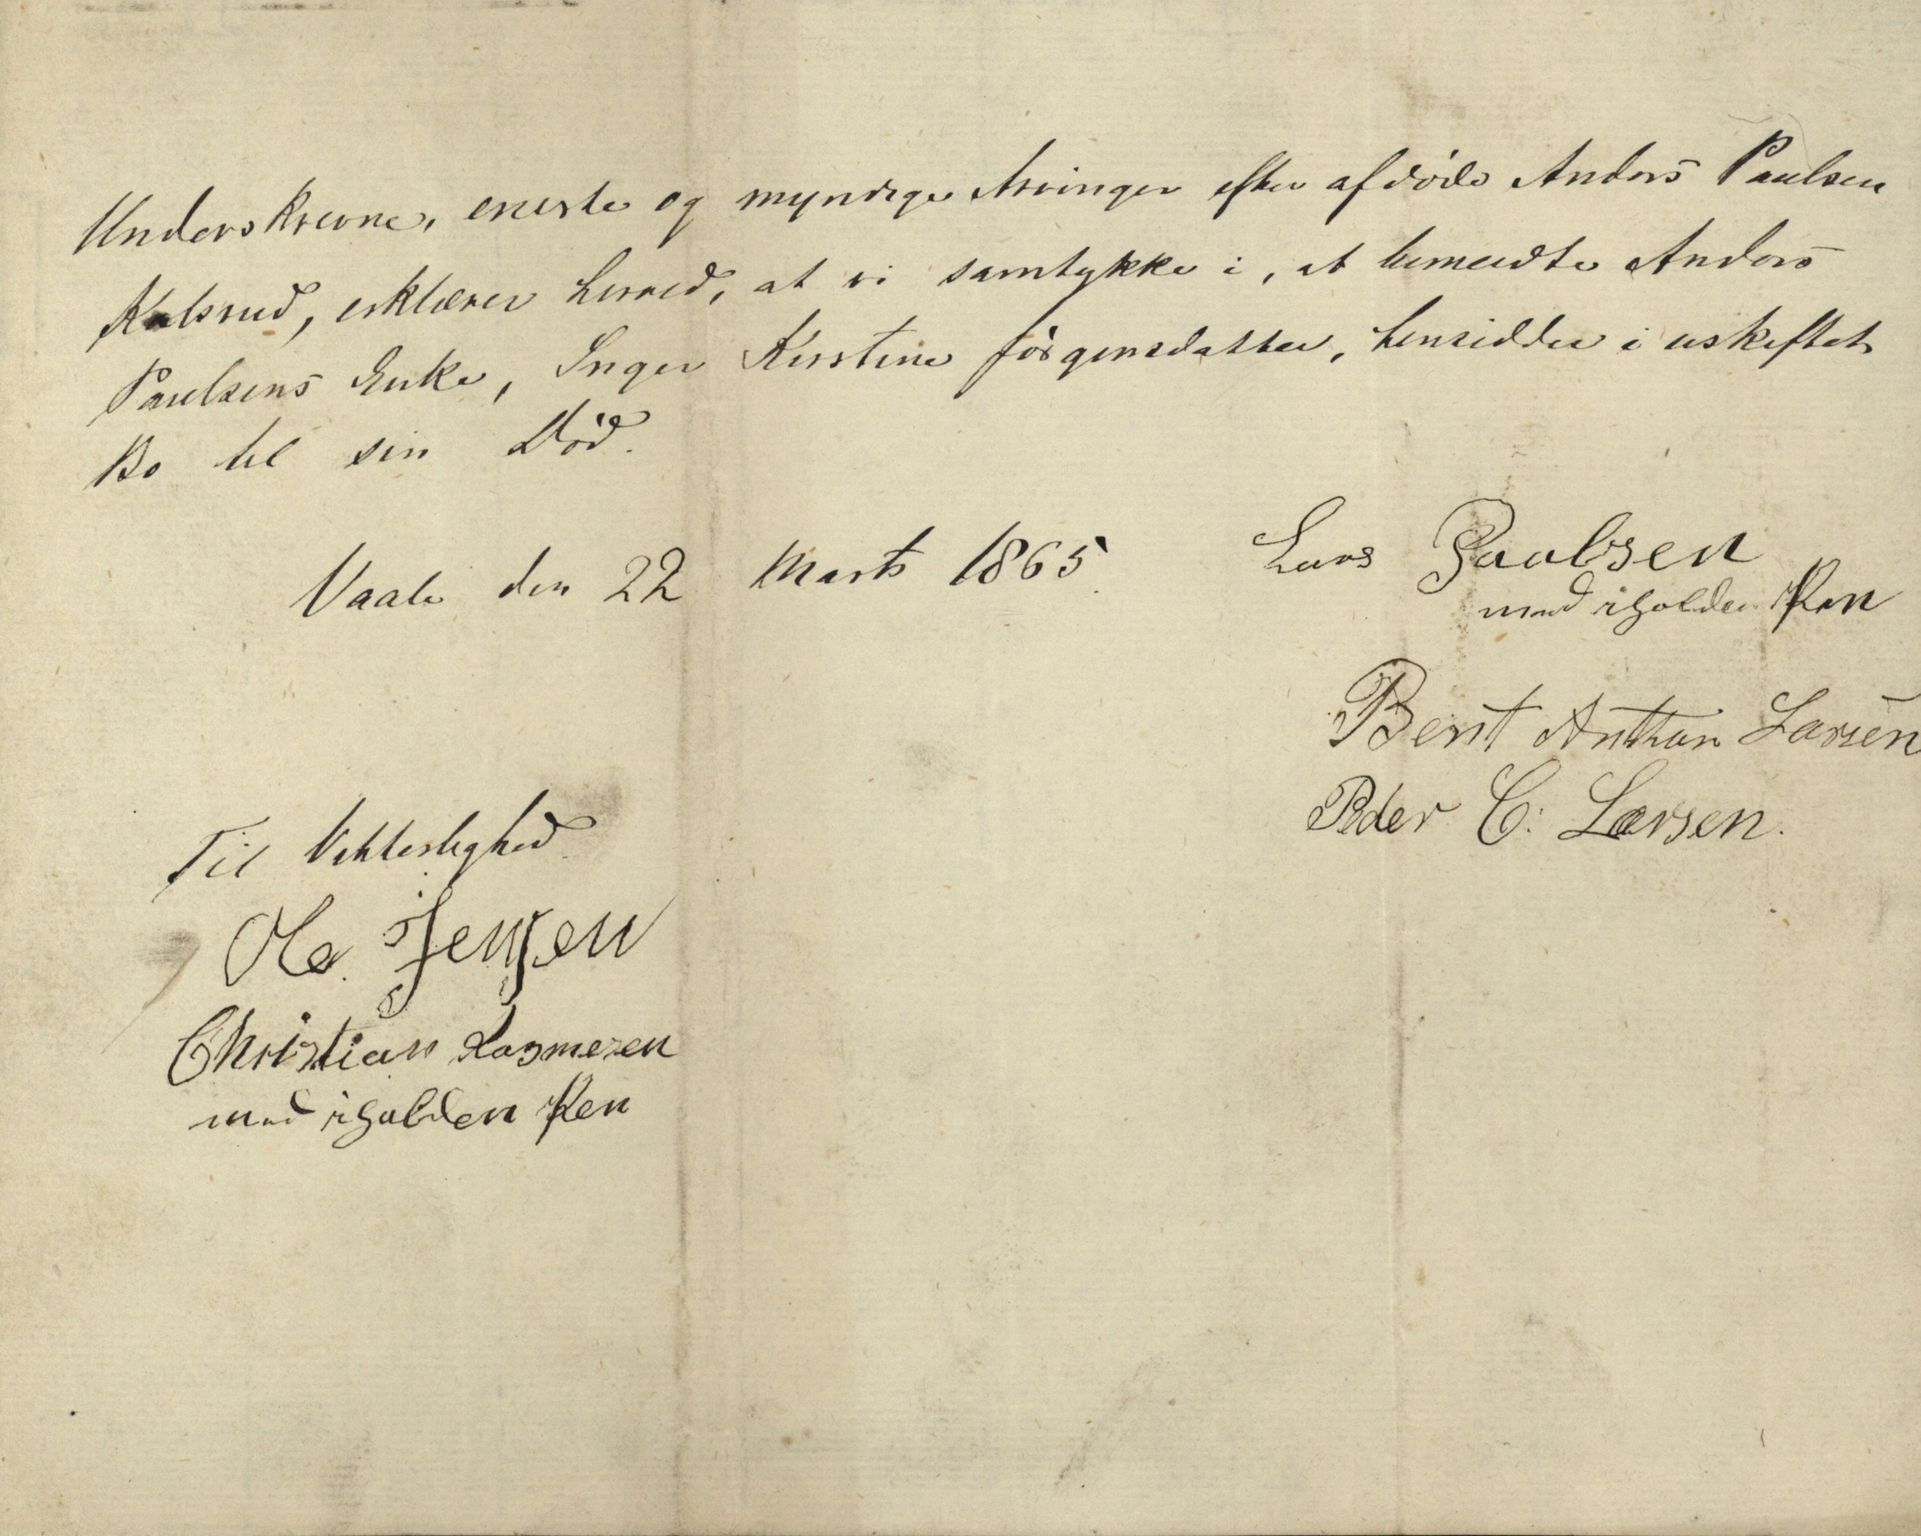 Underskrevne, eneste og myndige Arvinger efter afdøde Anders Paulsen
Kalsrud, erklærer herved, at vi samtykke i, at bemeldte Anders
Paulsens Enke, Inger Kirstine Jörgensdatter, hensidder i uskiftet
Bo til sin Død.
Vaale den 22 Marts 1865.
Lars Paalsen
med iholden Pen
Bernt Anthon Larsen
Peder C. Larsen.
Til Vitterlighed
Ole Jensen
Christian Rasmesen
med iholden Pen